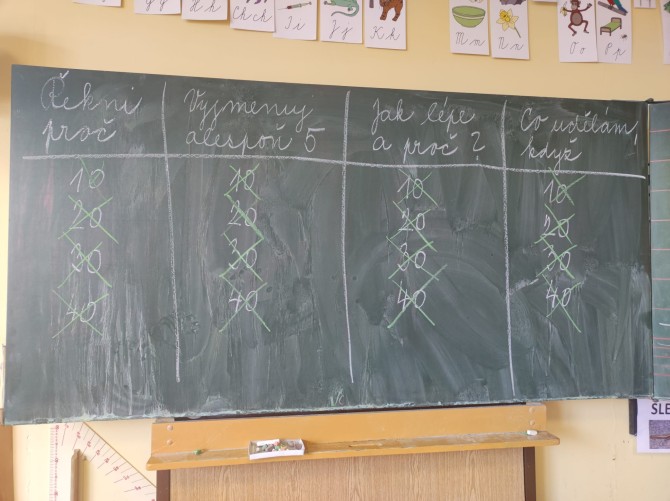 Ch ch
I i
J j
K k
M m
N n
O o
P p
Řekni proč
Vyjmenuj alespoň 5
Jak lépe a proč ?
Co udělám, když
10 10 10 10
20 20 20 20
30 30 30 30
40 40 40 40
SLE